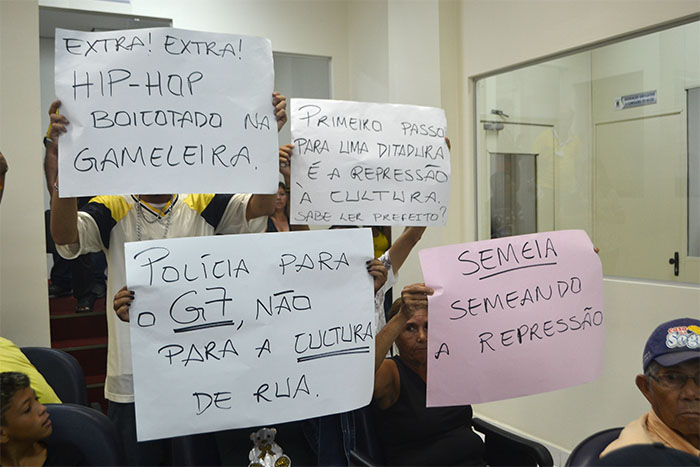 EXTRA! EXTRA!
HIP-HOP
BOICOTADO NA
GAMELEIRA.
PRIMEIRO PASSO
PARA UMA DITADURA
É A REPRESSÃO
À CULTURA.
SABE LER PREFEITO?
POLÍCIA PARA
O G7, NÃO
PARA A CULTURA
DE RUA.
SEMEIA
SEMEANDO
A REPRESSÃO